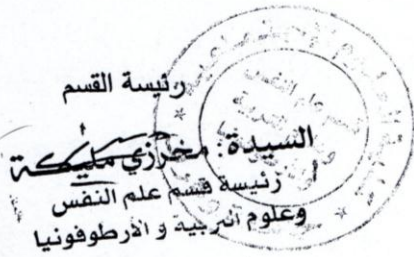 رئيسة القسم
السيدة: محرزي مليكة
رئيسة قسم علم النفس
وعلوم التربية و الارطوفونيا